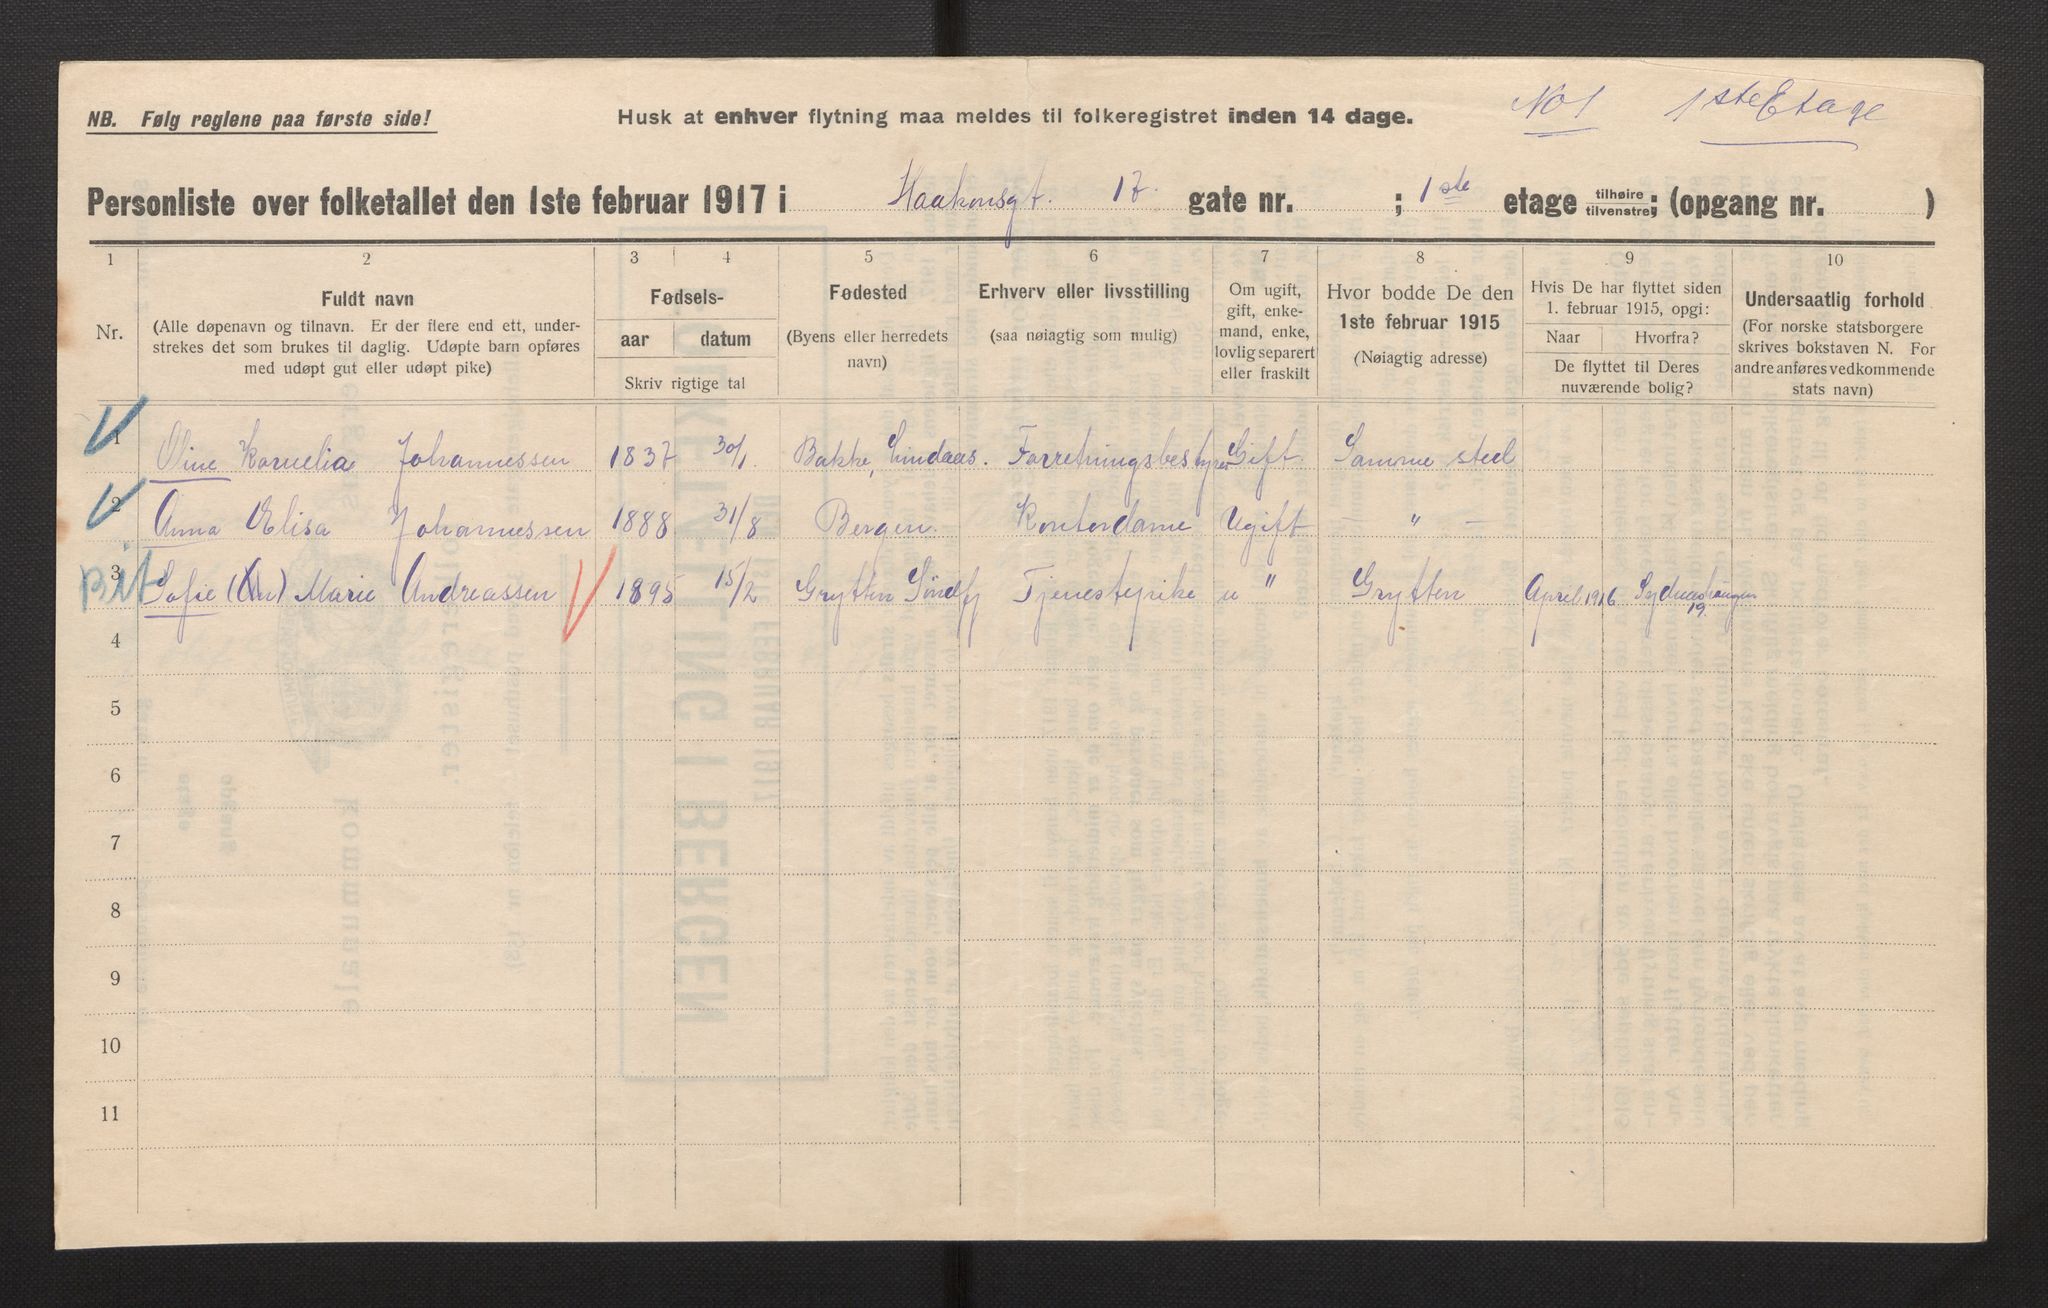 NB. Følg reglene paa første side!
Husk at enhver flytning maa meldes til folkeregistret inden 14 dage.
No 1 1ste Etage
Personliste over folketallet den 1ste februar 1917 i Haakonsgt. 17. gate nr. ; 1ste etage tilhøire tilvenstre; (opgang nr. )
1 2 3 4 5 6 7 8 9 10
Nr.
Fuldt navn
(Alle døpenavn og tilnavn. Er der flere end ett, under-
strekes det som brukes til daglig. Udøpte barn opføres
med udøpt gut eller udøpt pike)
Fødsels-
aar datum
Skriv rigtige tal
Fødested
(Byens eller herredets
navn)
Erhverv eller livsstilling
(saa nøiagtig som mulig)
Om ugift,
gift, enke-
mand, enke,
lovlig separert
eller fraskilt
Hvor bodde De den
1ste februar 1915
(Nøiagtig adresse)
Hvis De har flyttet siden
1. februar 1915, opgi:
Naar Hvorfra?
De flyttet til Deres
nuværende bolig?
Undersaatlig forhold
(For norske statsborgere
skrives bokstaven N. For
andre anføres vedkommende
stats navn)
1 Oline Kornelia Johannessen 1837 30/1. Bakke, Lindaas. Forretningsbestyrer Gift. Samme sted
2 Anna Elisa Johannessen 1888 31/8 Bergen. Kontordame Ugift – " –
3 Sofie Marie Andreassen 1895 15/2 Grytten Søndfj Tjenestepike u " Grytten April 1916 19.
4
5
6
7
8
9
10
11
FOLKETELLING I BERGEN
DEN 1STE FEBRUAR 1917